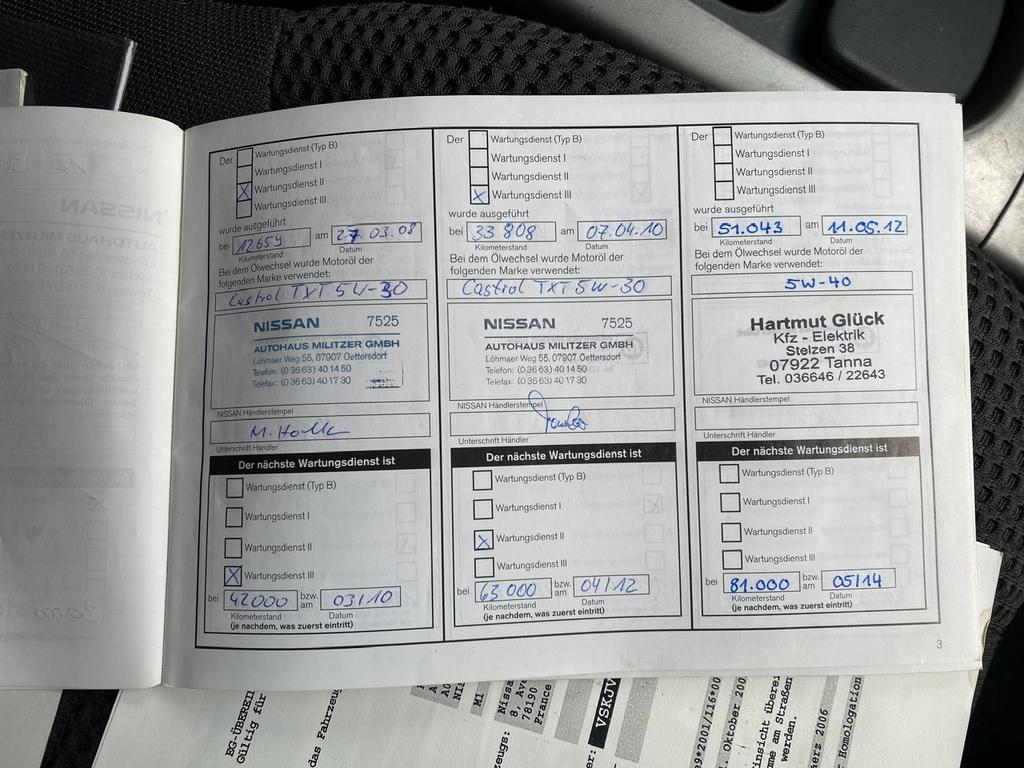 Der
Wartungsdienst (Typ B)
Wartungsdienst I
Wartungsdienst II
Wartungsdienst III
wurde ausgeführt
bei 12659 am 27 03.08
Kilometerstand Datum
Bei dem Ölwechsel wurde Motoröl der
folgenden Marke verwendet:
Castrol TXT 5W-30
NISSAN 7525
AUTOHAUS MILITZER GMBH
Löhmaer Weg 55, 07907 Oettersdorf
Telefon: (0 36 63) 40 14 50
Telefax: (0 36 63) 40 17 30
NISSAN Händlerstempel
Unterschrift Händler
Der nächste Wartungsdienst ist
Wartungsdienst (Typ B)
Wartungsdienst I
Wartungsdienst II
Wartungsdienst III
bei 42000 bzw. am 03/10
Kilometerstand Datum
(je nachdem, was zuerst eintritt)
Der
Wartungsdienst (Typ B)
Wartungsdienst I
Wartungsdienst II
Wartungsdienst III
wurde ausgeführt
bei 33 808 am 07.04.10
Kilometerstand Datum
Bei dem Ölwechsel wurde Motoröl der
folgenden Marke verwendet:
Castrol TXT 5W-30
NISSAN 7525
AUTOHAUS MILITZER GMBH
Löhmaer Weg 55, 07907 Oettersdorf
Telefon: (0 36 63) 40 14 50
Telefax: (0 36 63) 40 17 30
NISSAN Händlerstempel
Unterschrift Händler
Der nächste Wartungsdienst ist
Wartungsdienst (Typ B)
Wartungsdienst I
Wartungsdienst II
Wartungsdienst III
bei 63 000 bzw. am 04/12
Kilometerstand Datum
(je nachdem, was zuerst eintritt)
Der
Wartungsdienst (Typ B)
Wartungsdienst I
Wartungsdienst II
Wartungsdienst III
wurde ausgeführt
bei 51.043 am 11.05.12
Kilometerstand Datum
Bei dem Ölwechsel wurde Motoröl der
folgenden Marke verwendet:
5W-40
Hartmut Glück
Kfz - Elektrik
Stelzen 38
07922 Tanna
Tel. 036646 / 22643
NISSAN Händlerstempel
Unterschrift Händler
Der nächste Wartungsdienst ist
Wartungsdienst (Typ B)
Wartungsdienst I
Wartungsdienst II
Wartungsdienst III
bei 81.000 bzw. am 05/14
Kilometerstand Datum
(je nachdem, was zuerst eintritt)
3
EG-ÜBEREIN
Gültig für
das Fahrzeu
Nissa
8, Ave
78190
France
VSKJV
*2001/116*00
Oktober 200
insicht überei
me am Straßen
werden.
aerz 2006
Homologation